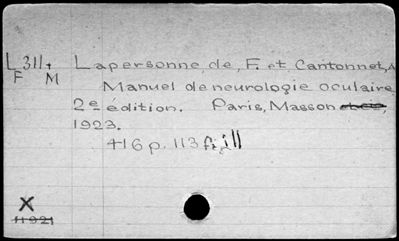 L311+ Lapersonne, de, F. et Cantonnet, A
F M
Manuel de neurologie oculaire
2e édition. Paris, Masson et cie,
1923.
416 p. 113 fig ill
X
11921